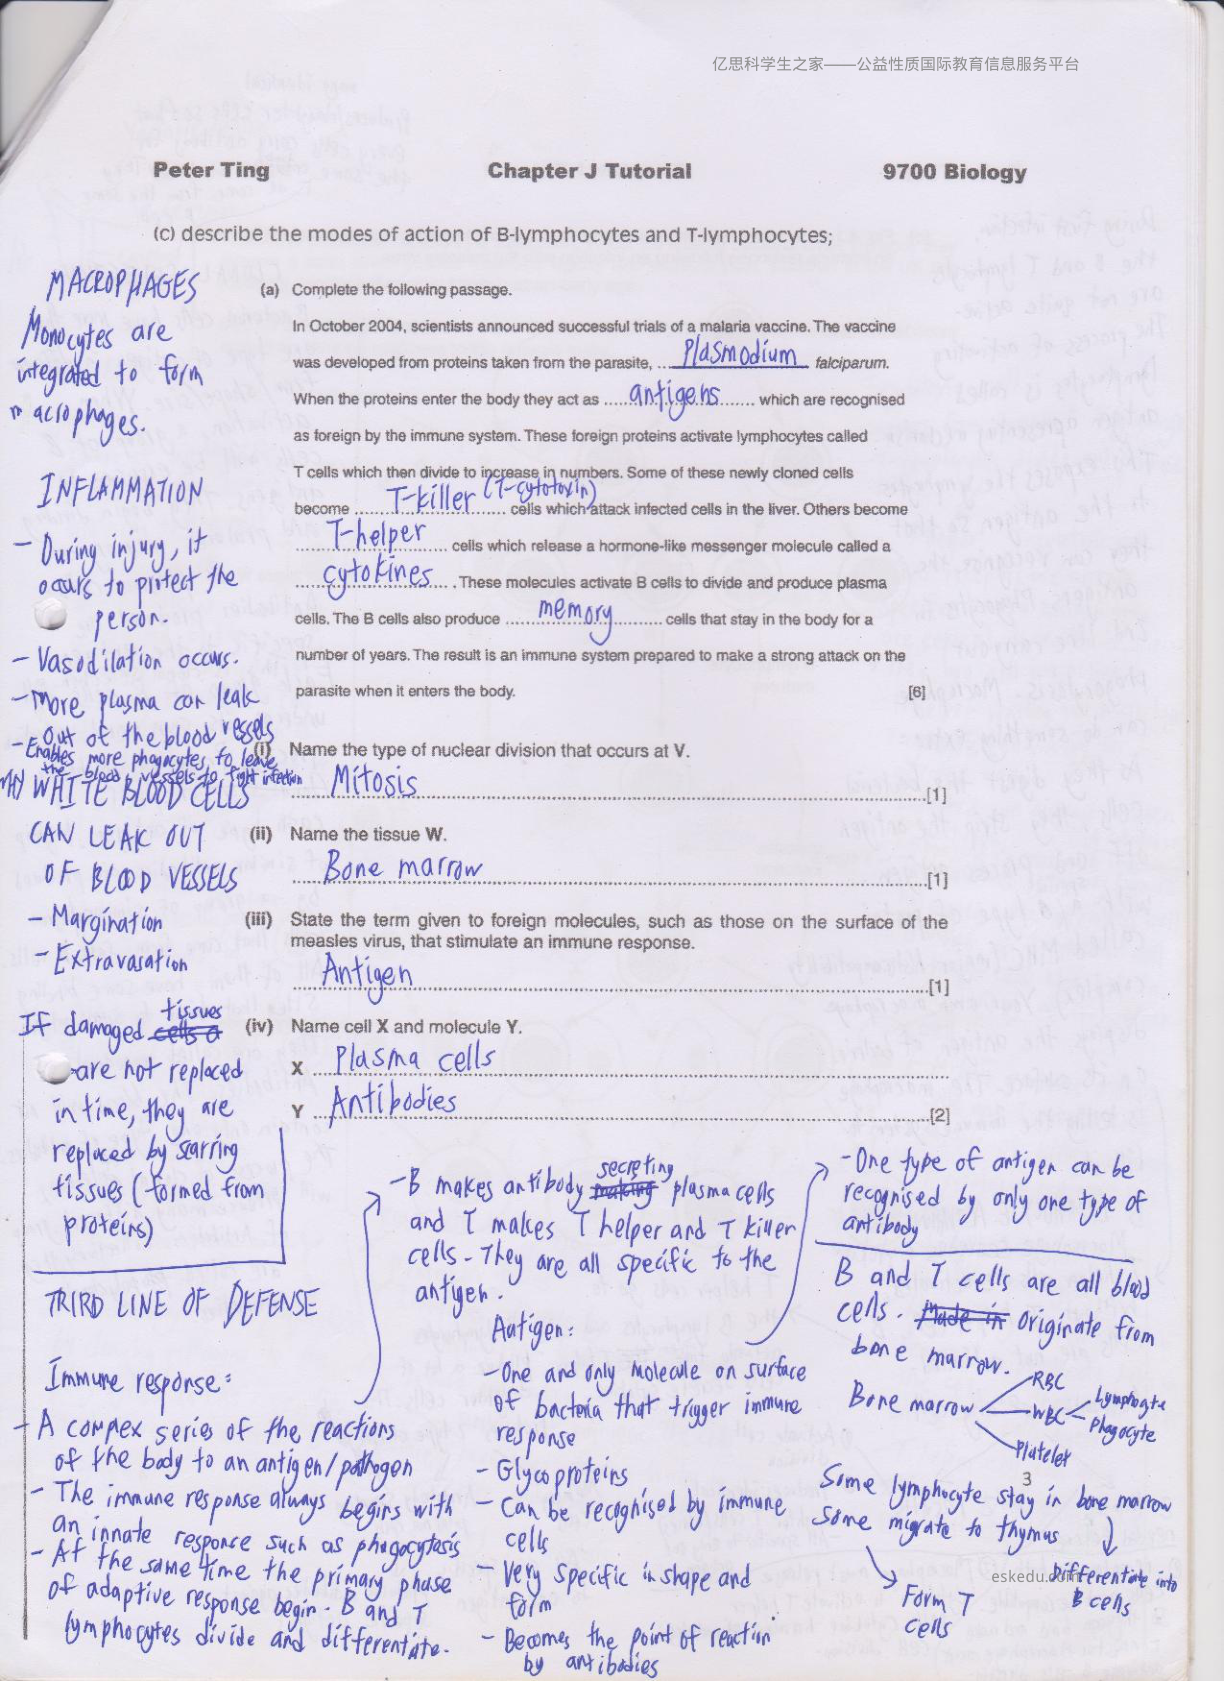 亿思科学生之家——公益性质国际教育信息服务平台
Peter Ting Chapter J Tutorial 9700 Biology
(c) describe the modes of action of B-lymphocytes and T-lymphocytes;
(a) Complete the following passage.
In October 2004, scientists announced successful trials of a malaria vaccine. The vaccine
was developed from proteins taken from the parasite, Plasmodium falciparum.
When the proteins enter the body they act as antigens which are recognised
as foreign by the immune system. These foreign proteins activate lymphocytes called
T cells which then divide to increase in numbers. Some of these newly cloned cells
become T-killer (T-cytotoxin) cells which attack infected cells in the liver. Others become
T-helper cells which release a hormone-like messenger molecule called a
cytokines. These molecules activate B cells to divide and produce plasma
cells. The B cells also produce memory cells that stay in the body for a
number of years. The result is an immune system prepared to make a strong attack on the
parasite when it enters the body. [6]
(i) Name the type of nuclear division that occurs at V.
Mitosis [1]
(ii) Name the tissue W.
Bone marrow [1]
(iii) State the term given to foreign molecules, such as those on the surface of the
measles virus, that stimulate an immune response.
Antigen [1]
(iv) Name cell X and molecule Y.
X Plasma cells
Y Antibodies [2]
MACROPHAGES
Monocytes are
integrated to form
macrophages.
INFLAMMATION
- During injury, it
occurs to protect the
person.
- Vasodilation occurs.
- More plasma can leak
out of the blood vessels
- Enables more phagocytes to leave
the blood vessels to fight infection
WHY WHITE BLOOD CELLS
CAN LEAK OUT
OF BLOOD VESSELS
- Margination
- Extravasation
If damaged cells a tissues
are not replaced
in time, they are
replaced by scarring
tissues (formed from
proteins)
TRIRD LINE OF DEFENSE
Immune response:
- A complex series of the reactions
of the body to an antigen/pathogen
- The immune response always begins with
an innate response such as phagocytosis
- At the same time the primary phase
of adaptive response begin. B and T
lymphocytes divide and differentiate.
- B makes antibody making secreting plasma cells
and T makes T helper and T killer
cells. They are all specific to the
antigen.
Antigen:
- One and only molecule on surface
of bacteria that trigger immune
response
- Glycoproteins
- Can be recognised by immune
cells
- Very specific in shape and
form
- Becomes the point of reaction
by antibodies
- One type of antigen can be
recognised by only one type of
antibody
B and T cells are all blood
cells. Made in originate from
bone marrow.
Bone marrow
RBC
WBC
Lymphocyte
Phagocyte
Platelet
3
Some lymphocyte stay in bone marrow
some migrate to thymus
Differentiate into
B cells
Form T
cells
eskedu.com